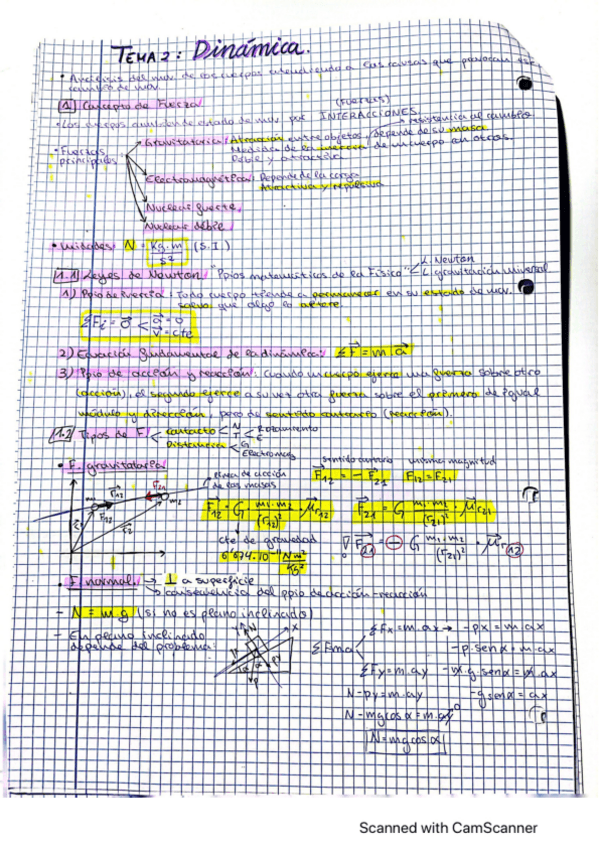 TEMA 2: Dinámica.
• Análisis del mov. de los cuerpos atendiendo a las causas que provocan ese
cambio de mov.
1 Concepto de Fuerza
(FUERZAS)
• Los cuerpos cambian de estado de mov. por INTERACCIONES.
→ resistencia al cambio
• Fuerzas principales
Gravitatoria: Atracción entre objetos, depende de su masa
Medida de la inercia de un cuerpo con otros.
Débil y atractiva
Electromagnética: Depende de la carga
Atractiva y repulsiva
Nuclear fuerte.
Nuclear débil.
• Unidades: N = Kg·m / s² (S.I.)
1.1 Leyes de Newton. "Ppios matemáticos de la Física" < L. Newton
L. gravitación universal
1) Ppio de inercia: Todo cuerpo tiende a permanecer en su estado de mov.
salvo que algo lo altere.
ΣFi = 0 < a = 0
v = cte
2) Ecuación fundamental de la dinámica: ΣF = m·a
3) Ppio de acción y reacción: cuando un cuerpo ejerce una fuerza sobre otro
(acción), el segundo ejerce a su vez otra fuerza sobre el primero de igual
módulo y dirección, pero de sentido contrario (reacción).
1.2 Tipos de F.
contacto < N
T
Rozamiento
Distancia < G
Electromag
• F. gravitatoria
línea de acción
de las masas
sentido contrario misma magnitud
F12 = - F21 F12 = F21
F12 = G m1·m2 / (r12)² · μr12
F21 = G m1·m2 / (r21)² · μr21
cte de gravedad
6'674·10⁻¹¹ Nm² / Kg²
F21 = - G m1·m2 / (r21)² · μr12
• F. normal. → ⊥ a superficie
→ consecuencia del ppio de acción-reacción
– N = m·g (si no es plano inclinado)
– En plano inclinado
depende del problema
ΣFma
ΣFx = m·ax → -px = m·ax
-p·senα = m·ax
ΣFy = m·ay
-m·g·senα = m·ax
N - py = m·ay
-gsenα = ax
N - mgcosα = m·ay 0
N = mgcosα
Scanned with CamScanner